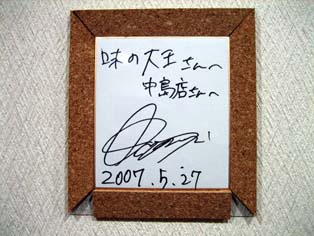 味の大王さんへ
中島店さんへ
2007.5.27